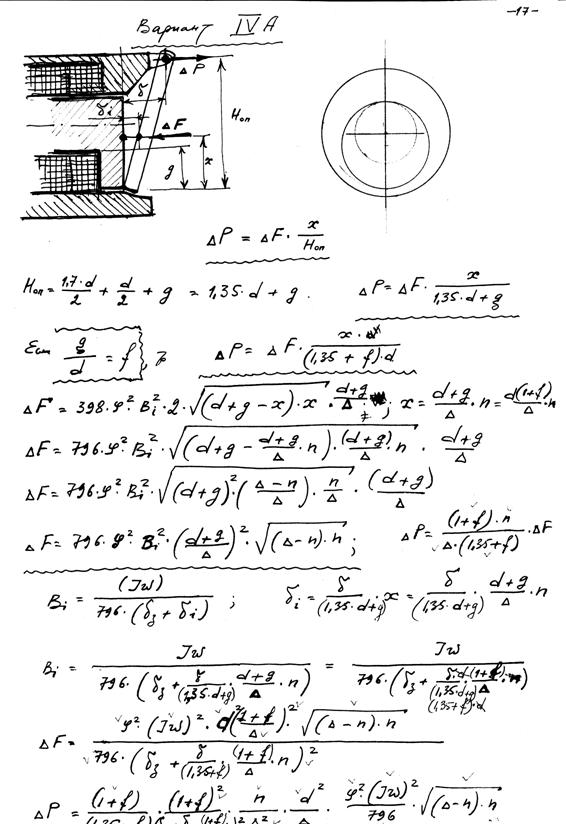 -17-
Вариант IV A
ΔP
δ
δi
Hоп
ΔF
g
x
ΔP = ΔF · x/Hоп
Hоп = 1,7·d/2 + d/2 + g = 1,35·d + g . ΔP = ΔF · x/(1,35·d + g)
Если g/d = f, то ΔP = ΔF · x/((1,35 + f)·d)
ΔF = 398·φ²·Bi²·2·√((d+g−x)·x) · (d+g)/Δ ; x = (d+g)/Δ · n = d(1+f)/Δ · n
ΔF = 796·φ²·Bi²·√((d+g − (d+g)/Δ · n)·(d+g)/Δ · n) · (d+g)/Δ
ΔF = 796·φ²·Bi²·√((d+g)²·((Δ−n)/Δ)·n/Δ) · (d+g)/Δ
ΔF = 796·φ²·Bi²·((d+g)/Δ)²·√((Δ−n)·n) ; ΔP = (1+f)·n/(Δ·(1,35+f)) · ΔF
Bi = (Jw)/(796·(δз + δi)) ; δi = δ/(1,35·d+g) · x = δ/(1,35·d+g) · (d+g)/Δ · n
Bi = Jw/(796·(δз + δ/(1,35·d+g) · (d+g)/Δ · n)) = Jw/(796·(δз + δ·d·(1+f)/((1,35·d+g)·Δ) · n))
(1,35+f)·d
ΔF = φ²·(Jw)²·d²((1+f)/Δ)²·√((Δ−n)·n)/(796·(δз + δ/(1,35+f) · (1+f)/Δ · n)²)
ΔP = (1+f) · (1+f)² · n · d² · φ²·(Jw)²/796 · √((Δ−n)·n)